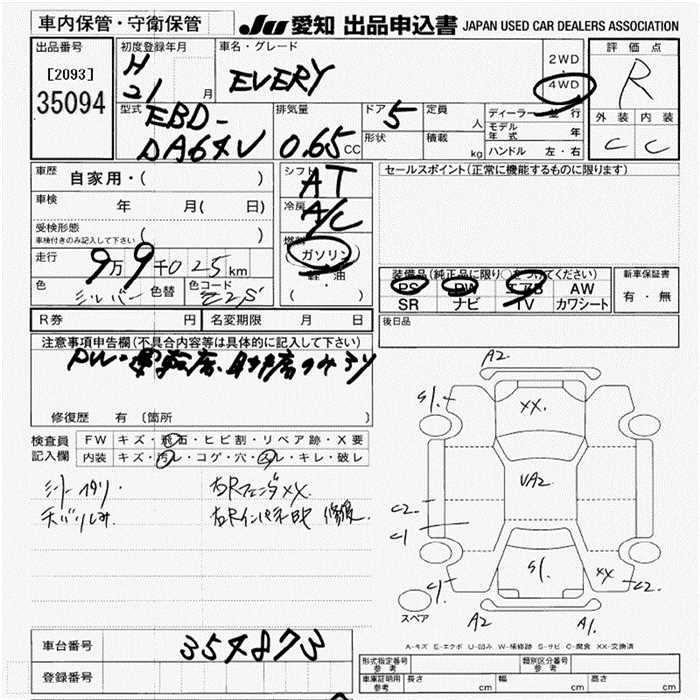 車内保管・守衛保管
JU 愛知 出品申込書 JAPAN USED CAR DEALERS ASSOCIATION
出品番号
[2093]
35094
初度登録年月
H
21 月
車名・グレード
EVERY
2WD
・
4WD
評価点
R
外装 内装
C C
型式
EBD-
DA64V
排気量
0.65 CC
ドア 5
形状
定員 人
積載 kg
ディーラー・並行
モデル年式 年
ハンドル 左・右
車歴
自家用・( )
車検
年 月( 日)
受検形態
車検付きのみ記入して下さい ( )
走行
9万9千025km
色 シルバー 色替
色コード Z2S
シフト
AT
冷房
A/C
燃料
ガソリン
軽油
( ・ )
セールスポイント(正常に機能するものに限ります)
装備品(純正品に限り○をつけてください)
PS PW エアB AW
SR ナビ TV カワシート
新車保証書
有・無
後日品
R券 円 名変期限 月 日
注意事項申告欄(不具合内容等は具体的に記入して下さい)
修復歴 有 〔箇所 〕
検査員
記入欄
FW キズ・飛石・ヒビ割・リペア跡・X要
内装 キズ・汚レ・コゲ・穴・スレ・キレ・破レ
右Rフェンダ XX.
A2
S1. XX.
VA2
C2.
C1
C1. S1. XX C2.
A2 A1.
スペア
A-キズ E-エクボ U-凹み W-補修跡 S-サビ C-腐食 XX-交換済
車台番号 354873
登録番号
形式指定番号 参考
類別区分番号 参考
車庫証明用 参考 長さ cm 幅 cm 高さ cm